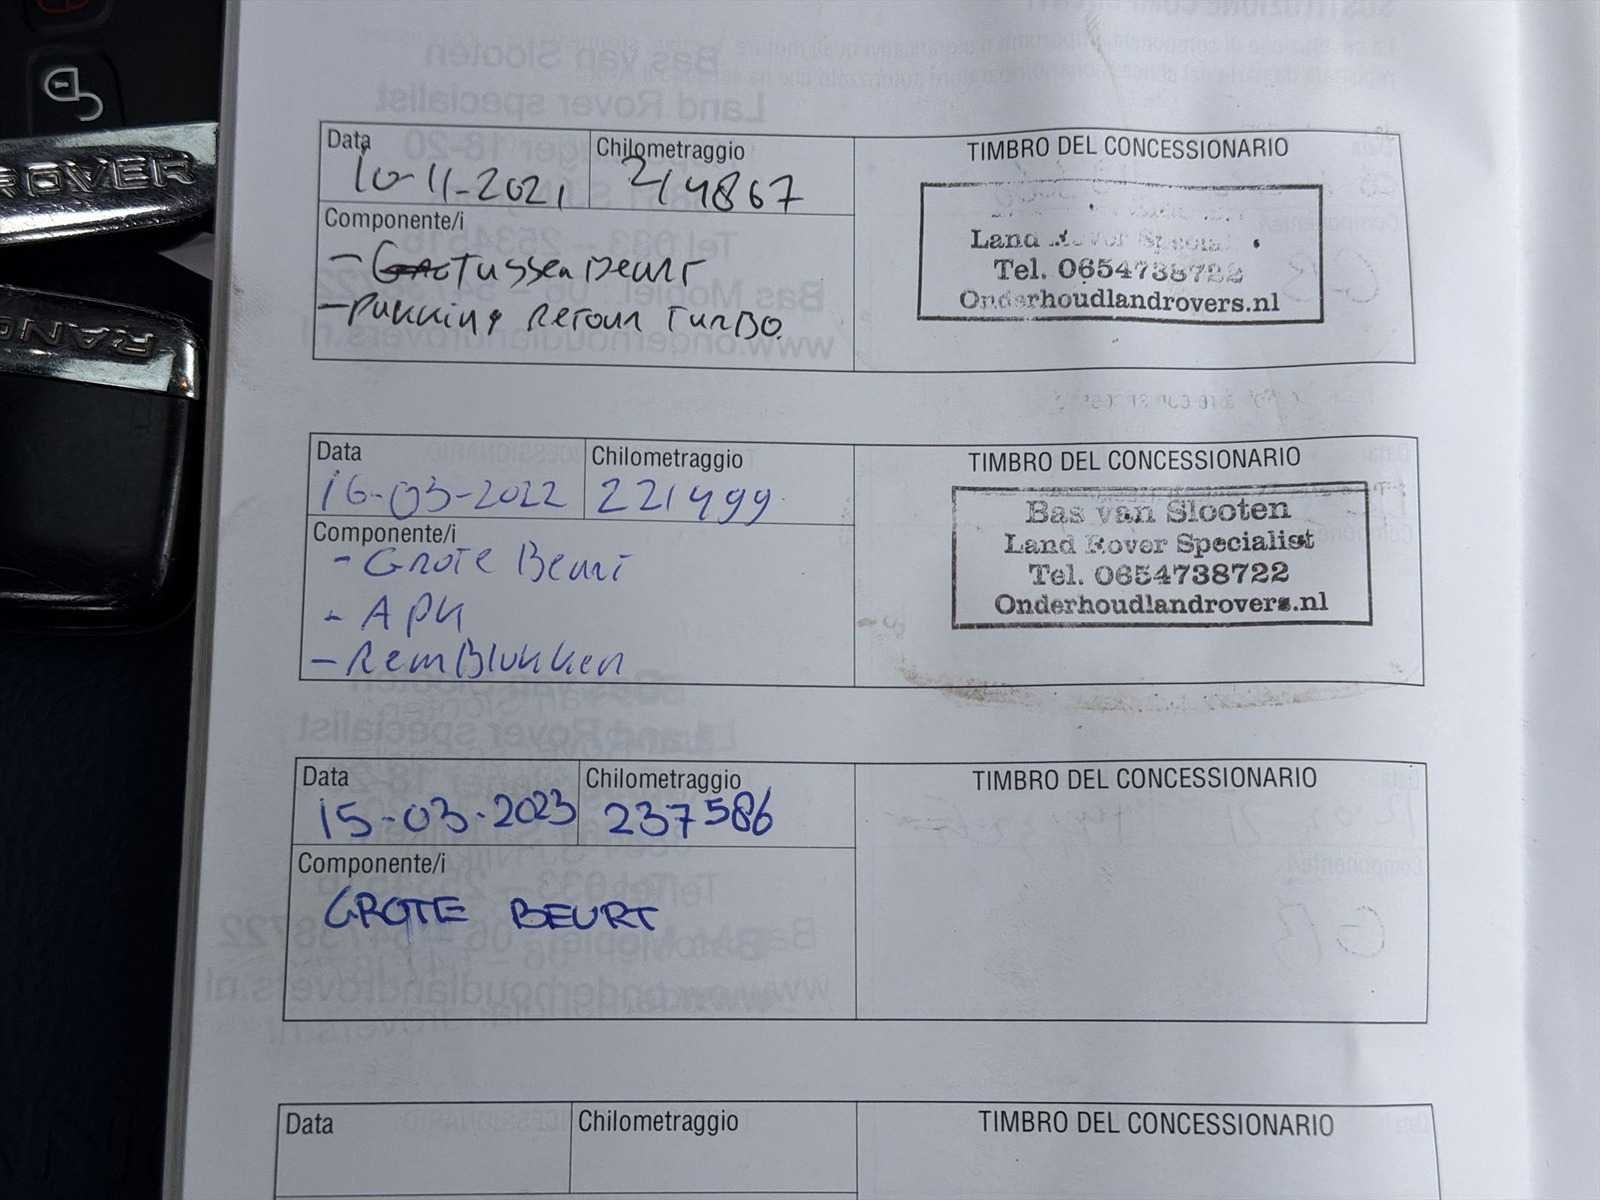 ROVER
RANG
Data
10-11-2021
Chilometraggio
214867
TIMBRO DEL CONCESSIONARIO
Componente/i
- Tussenbeurt
- Pakking Retour Turbo.
Land Rover Special
Tel. 0654738722
Onderhoudlandrovers.nl
Data
16-03-2022
Chilometraggio
221499
TIMBRO DEL CONCESSIONARIO
Componente/i
- Grote Beurt
- APK
- Remblokken
Bas van Slooten
Land Rover Specialist
Tel. 0654738722
Onderhoudlandrovers.nl
Data
15-03-2023
Chilometraggio
237586
TIMBRO DEL CONCESSIONARIO
Componente/i
GROTE BEURT
Data
Chilometraggio
TIMBRO DEL CONCESSIONARIO